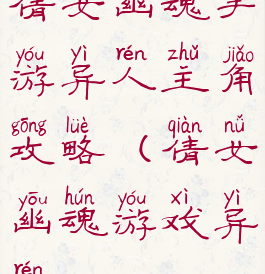 倩女幽魂手
yóu yì rén zhǔ jiǎo
游异人主角
gōng lüè qiàn nǚ
攻略（倩女
yōu hún yóu xì yì
幽魂游戏异
rén